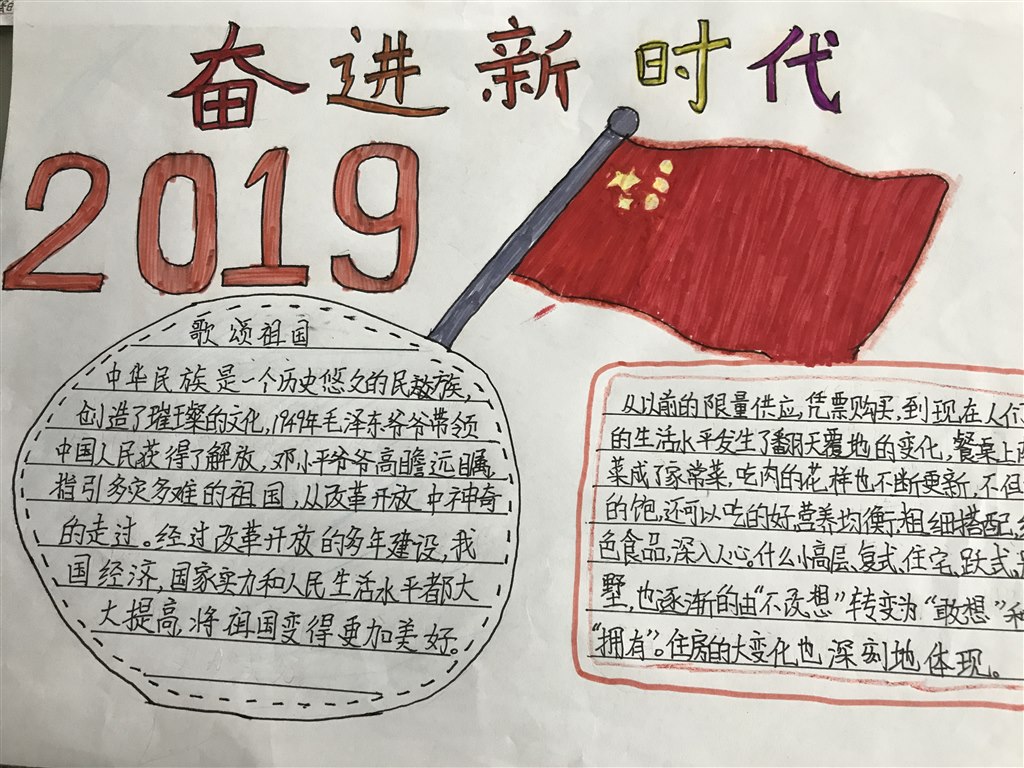 奋进新时代
2019
歌颂祖国
中华民族是一个历史悠久的民族,
创造了璀璨的文化,1949年毛泽东爷爷带领
中国人民获得了解放,邓小平爷爷高瞻远瞩,
指引多灾多难的祖国,从改革开放中神奇
的走过。经过改革开放的多年建设,我
国经济,国家实力和人民生活水平都大
大提高,将祖国变得更加美好。
从以前的限量供应,凭票购买,到现在人们
的生活水平发生了翻天覆地的变化,餐桌上
菜成了家常菜,吃肉的花样也不断更新,不但
的饱,还可以吃的好,营养均衡,粗细搭配,
色食品,深入人心。什么小高层、复式、住宅、跃式、
墅,也逐渐的由“不改想”转变为“敢想”和
“拥有”。住房的大变化也深刻地体现。